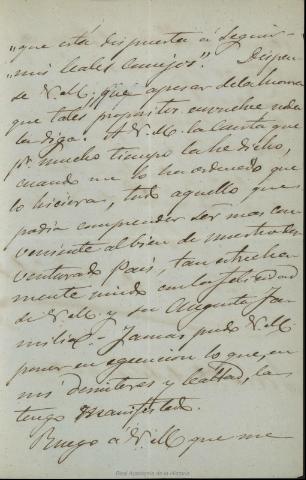 "que está dispuesta á seguir
"mis leales consejos". Dispen-
se V.M. que apesar de la honra
que tales propositos envuelve no le
la diga. A V.M. la consta que
pr. mucho tiempo la he dicho,
cuando me lo ha ordenado que
lo hiciera, todo aquello que
podia comprender ser mas con-
veniente al bien de nuestro des-
venturado Pais, tan estrecha-
mente unido con la felicidad
de V.M. y su Augusta Fa-
milia.- Jamas pudo V.M
poner en egecucion lo que, en
mi desinteres y lealtad, la
tengo manifestado.
Ruego á V.M que me
Real Academia de la Historia